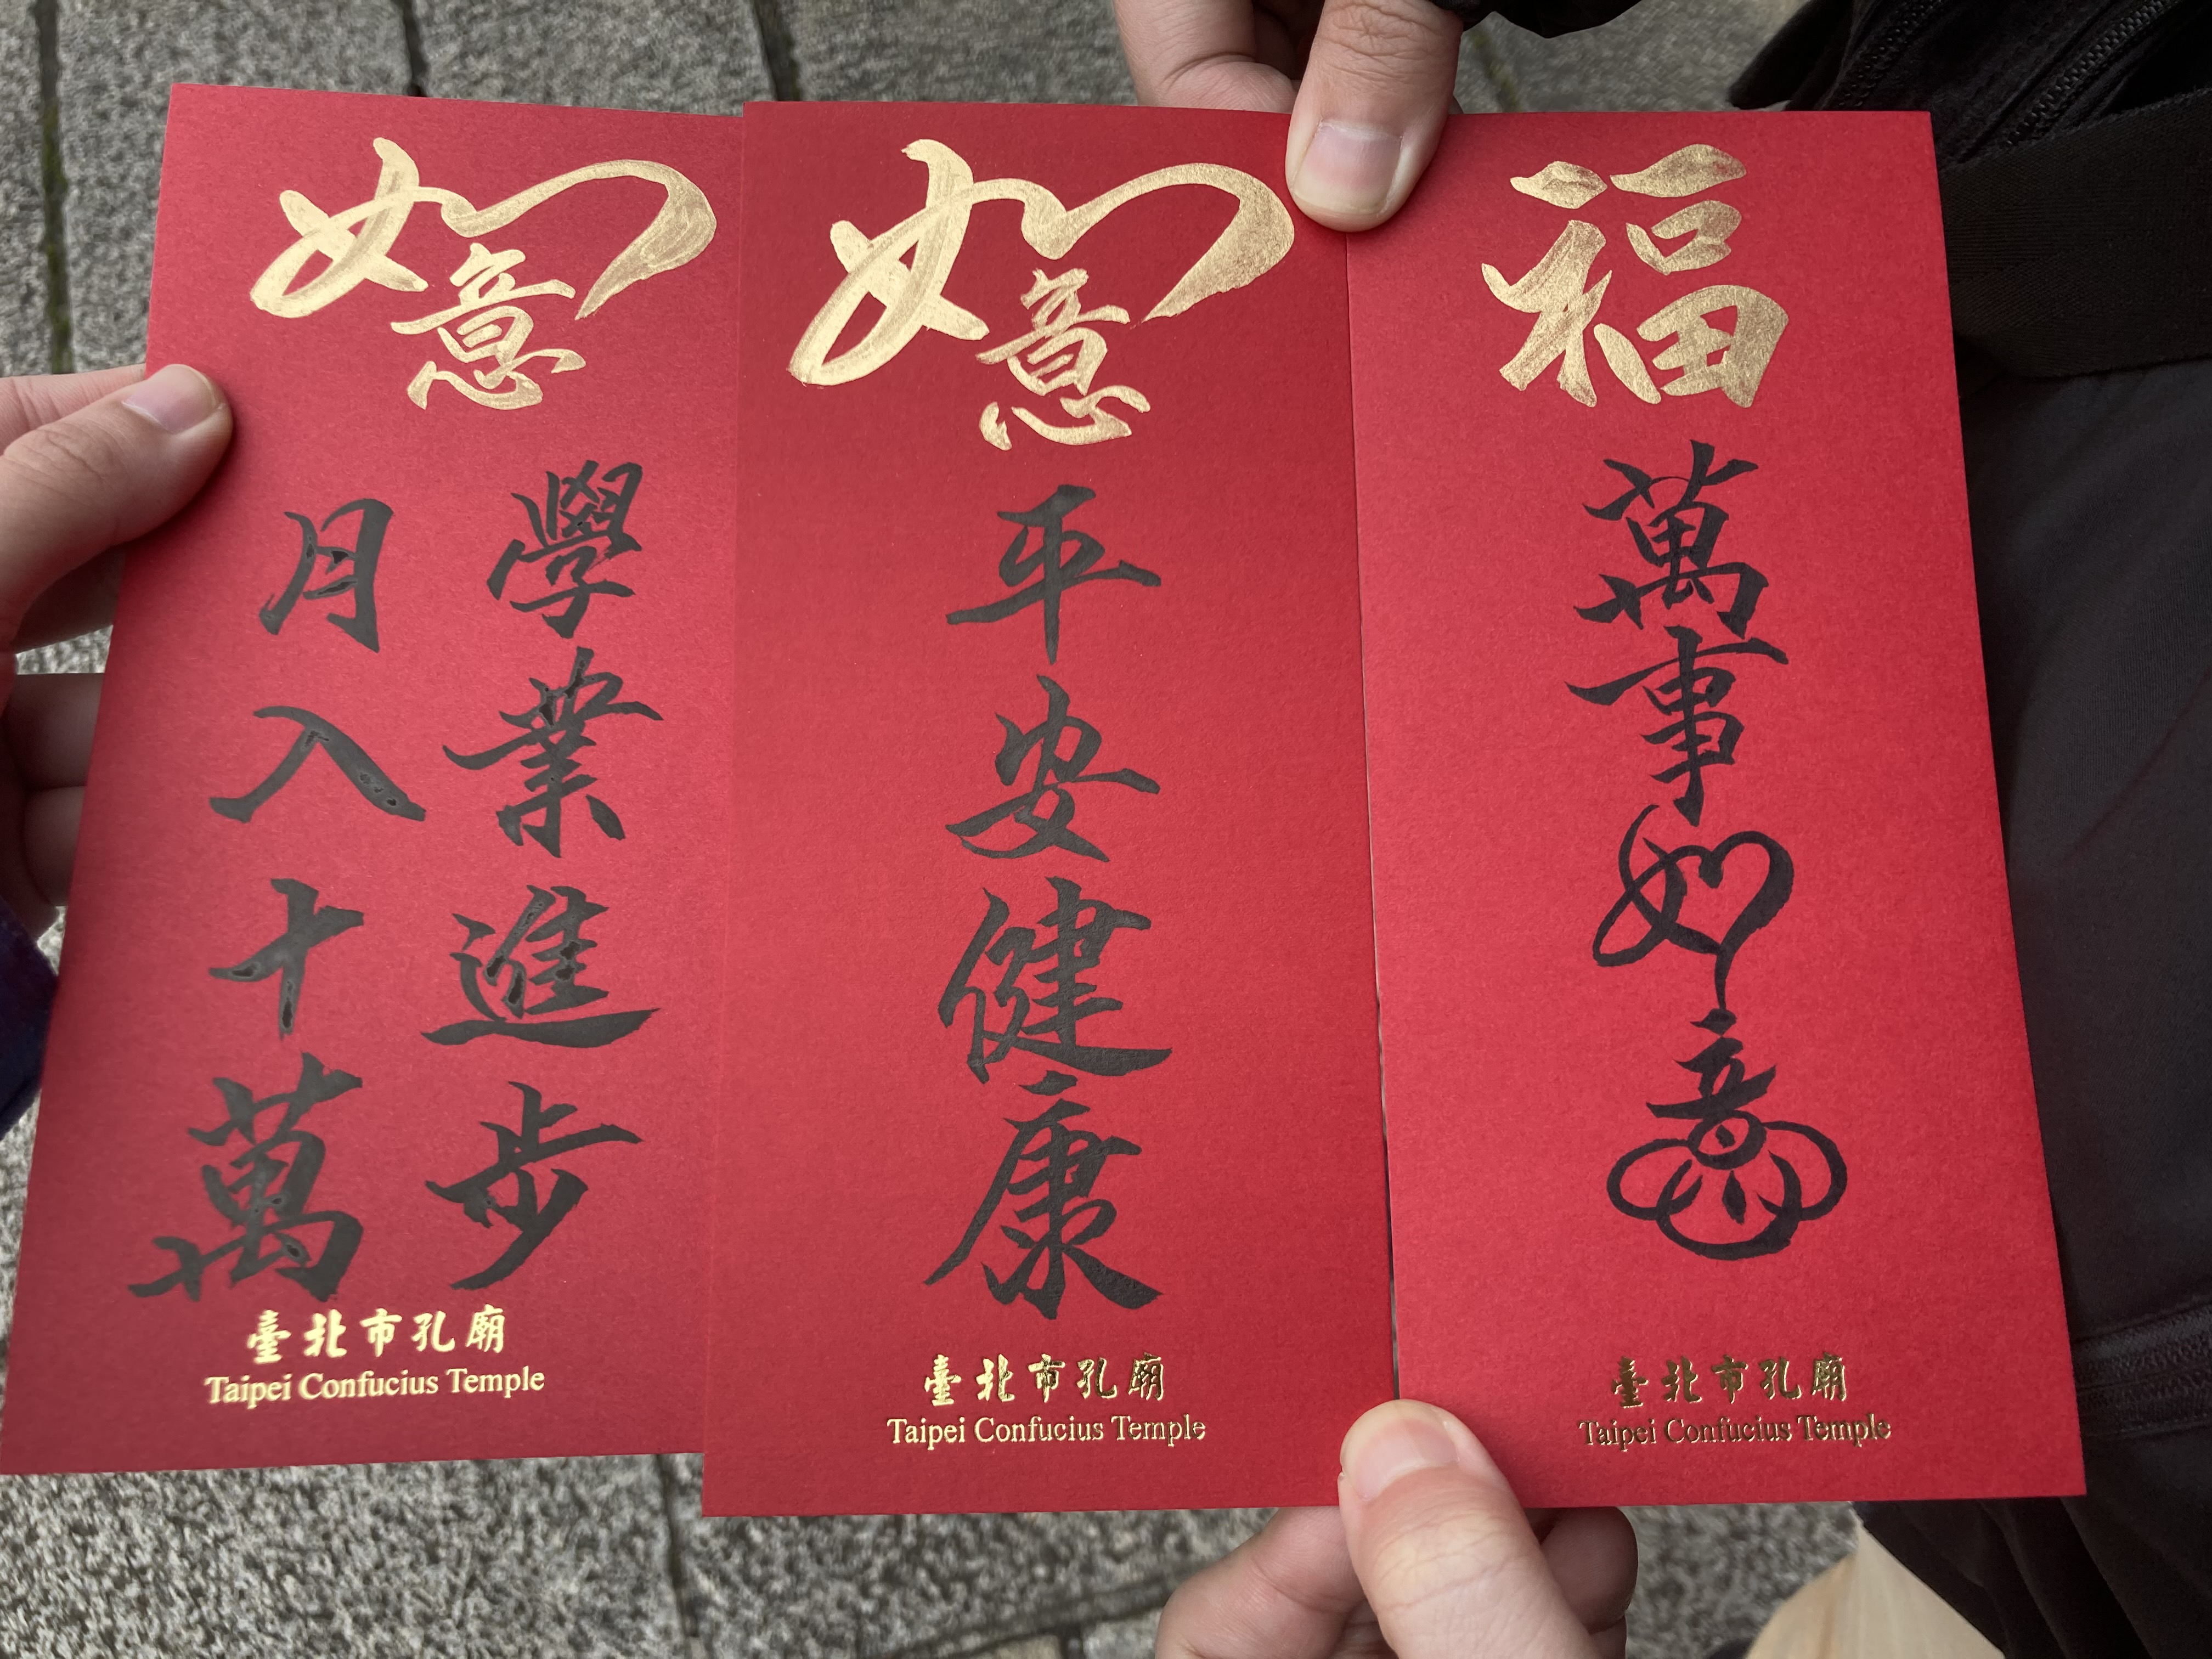 如意
學業進步
月入十萬
臺北市孔廟
Taipei Confucius Temple
如意
平安健康
臺北市孔廟
Taipei Confucius Temple
福
萬事如意
臺北市孔廟
Taipei Confucius Temple